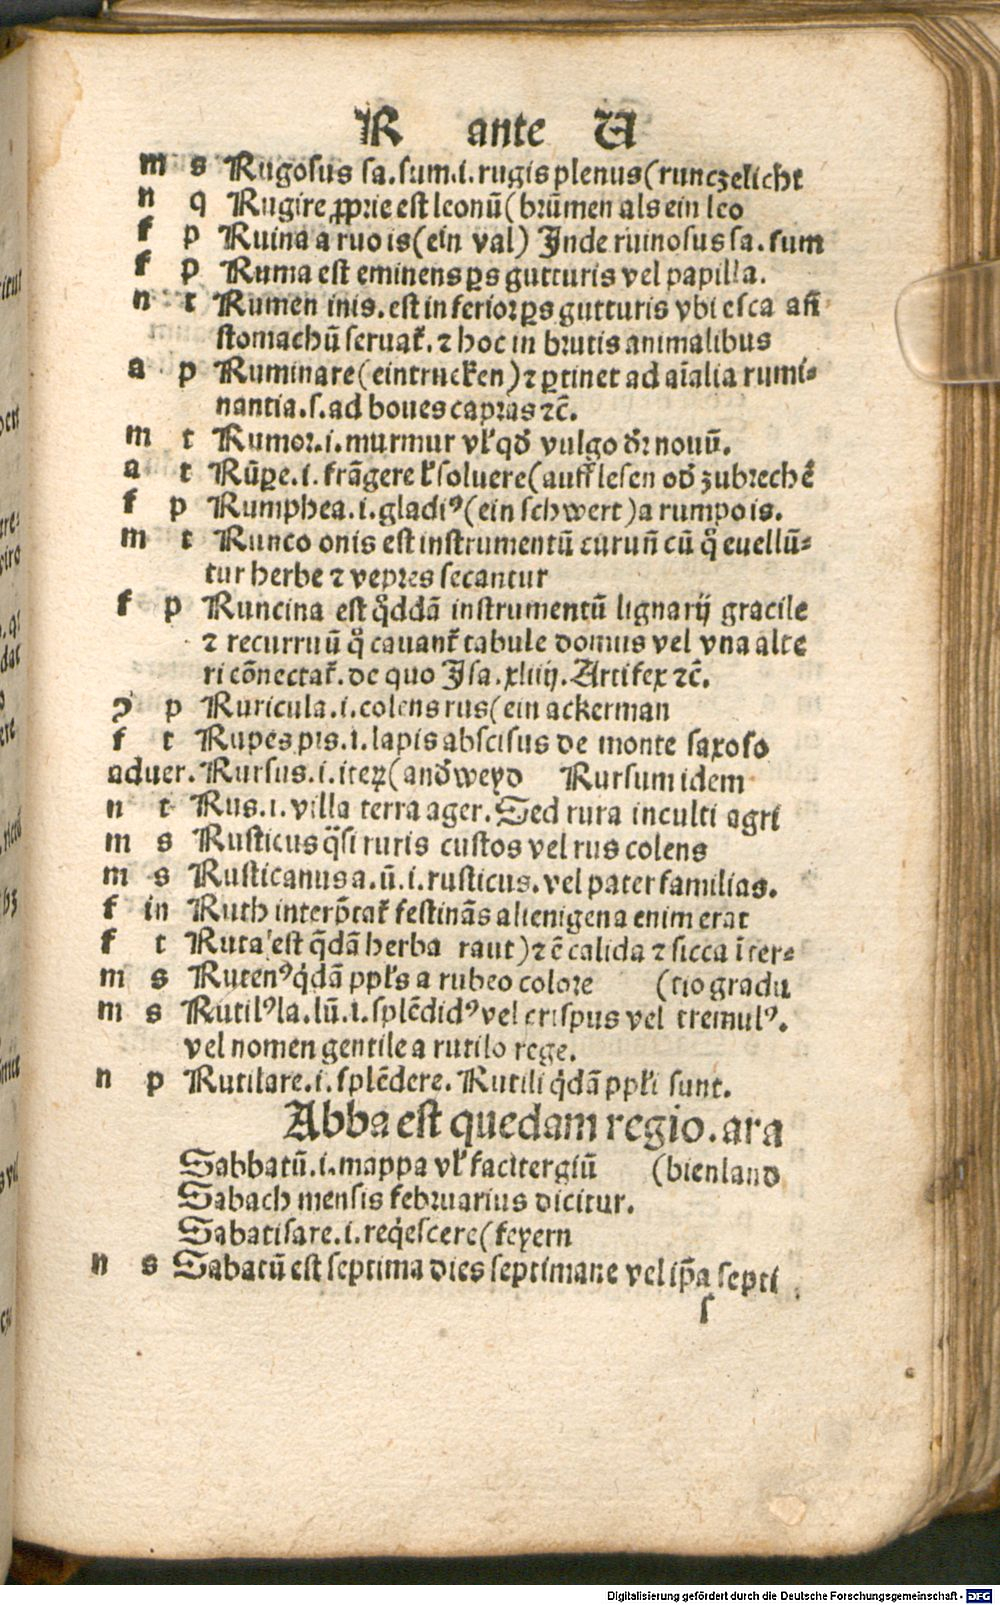 R ante U
m s Rugosus sa.sum.i.rugis plenus(runczelicht
n q Rugire ꝓprie est leonū(brūmen als ein leo
f p Ruina a ruo is(ein val) Inde ruinosus sa.sum
f p Ruma est eminens ꝑs gutturis vel papilla.
n t Rumen inis.est inferior ꝑs gutturis vbi esca an̄
stomachū seruat᷑.⁊ hoc in brutis animalibus
a p Ruminare(eintrucken)⁊ ꝑtinet ad aīalia rumi⸗
nantia.s.ad boues capras ⁊c̄.
m t Rumor.i.murmur vl̕ qđ vulgo dr̄ nouū.
a t Rūꝑe.i.frāgere l̕ soluere(aufflesen ođ zubrechē
f p Rumphea.i.gladiꝰ(ein schwert)a rumpo is.
m t Runco onis est instrumentū curuū cū qͦ euellū⸗
tur herbe ⁊ vepres secantur
f p Runcina est qͦddā instrumentū lignarij gracile
⁊ recurruū qͦ cauant᷑ tabule domus vel vna alte
ri cōnectat᷑.de quo Isa.xliiij.Artifex ⁊c̄.
ꝯ p Ruricula.i.colens rus(ein ackerman
f t Rupes pis.i.lapis abscisus de monte saxoso
aduer. Rursus.i.iteꝝ(anđweyd Rursum idem
n t Rus.i.villa terra ager.Sed rura inculti agri
m s Rusticus q̄si ruris custos vel rus colens
m s Rusticanus a.ū.i.rusticus.vel pater familias.
f in Ruth interp̄tat᷑ festinās alienigena enim erat
f t Ruta(est q̄dā herba raut)⁊ ē calida ⁊ sicca ī ter⸗
m s Rutenꝰ q̇dā ppl̕s a rubeo colore (tio gradu
m s Rutilꝰ la.lū.i.splēdidꝰ vel crispus vel tremulꝰ.
vel nomen gentile a rutilo rege.
n p Rutilare.i.splēdere.Rutili q̇dā ppl̕i sunt.
Abba est quedam regio.ara
Sabbatū.i.mappa vl̕ facitergiū (bienland
Sabach mensis februarius dicitur.
Sabatisare.i.req̇escere(feyern
n s Sabatū est septima dies septimane vel ip̄a septi
s
Digitalisierung gefördert durch die Deutsche Forschungsgemeinschaft - DFG